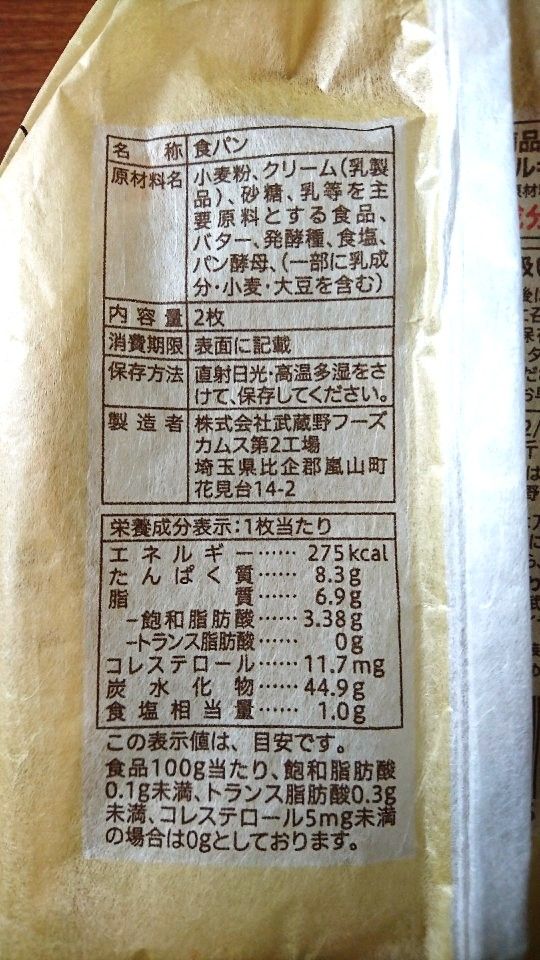 名称 食パン
原材料名 小麦粉、クリーム(乳製
品)、砂糖、乳等を主
要原料とする食品、
バター、発酵種、食塩、
パン酵母、(一部に乳成
分・小麦・大豆を含む)
内容量 2枚
消費期限 表面に記載
保存方法 直射日光・高温多湿をさ
けて、保存してください。
製造者 株式会社武蔵野フーズ
カムス第2工場
埼玉県比企郡嵐山町
花見台14-2
栄養成分表示:1枚当たり
エネルギー…… 275kcal
たんぱく質…… 8.3g
脂質…… 6.9g
-飽和脂肪酸…… 3.38g
-トランス脂肪酸…… 0g
コレステロール…… 11.7mg
炭水化物…… 44.9g
食塩相当量…… 1.0g
この表示値は、目安です。
食品100g当たり、飽和脂肪酸
0.1g未満、トランス脂肪酸0.3g
未満、コレステロール5mg未満
の場合は0gとしております。